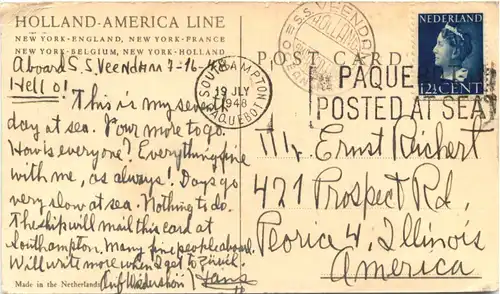 HOLLAND-AMERICA LINE
NEW YORK-ENGLAND, NEW YORK-FRANCE
NEW YORK-BELGIUM, NEW YORK-HOLLAND
Aboard S.S. Veendam 7-16-48
Hello!
This is my seventh
day at sea. Four more to go.
How is everyone? Everything fine
with me, as always! Days go
very slow at sea. Nothing to do.
The ship will mail this card at
Southampton. Many fine people aboard.
Will write more when I get to Zürich.
Auf Wiedersehen! Hans
Made in the Netherlands
POST CARD
S.S. VEENDAM
HOLLAND
SOUTHAMPTON
19 JLY
1948
PAQUEBOT
PAQUEBOT
POSTED AT SEA
NEDERLAND
12½ CENT
Mr. Ernst Richert
421 Prospect Rd.
Peoria 4, Illinois
America